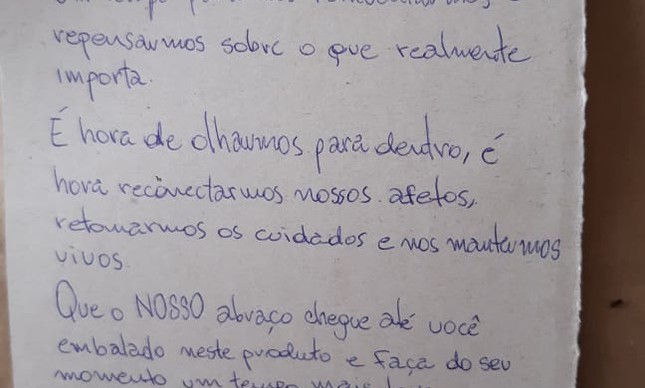 repensarmos sobre o que realmente
importa.
É hora de olharmos para dentro, é
hora reconectarmos nossos afetos,
retomarmos os cuidados e nos mantermos
vivos.
Que o NOSSO abraço chegue até você
embalado neste produto e faça do seu
momento um tempo mais